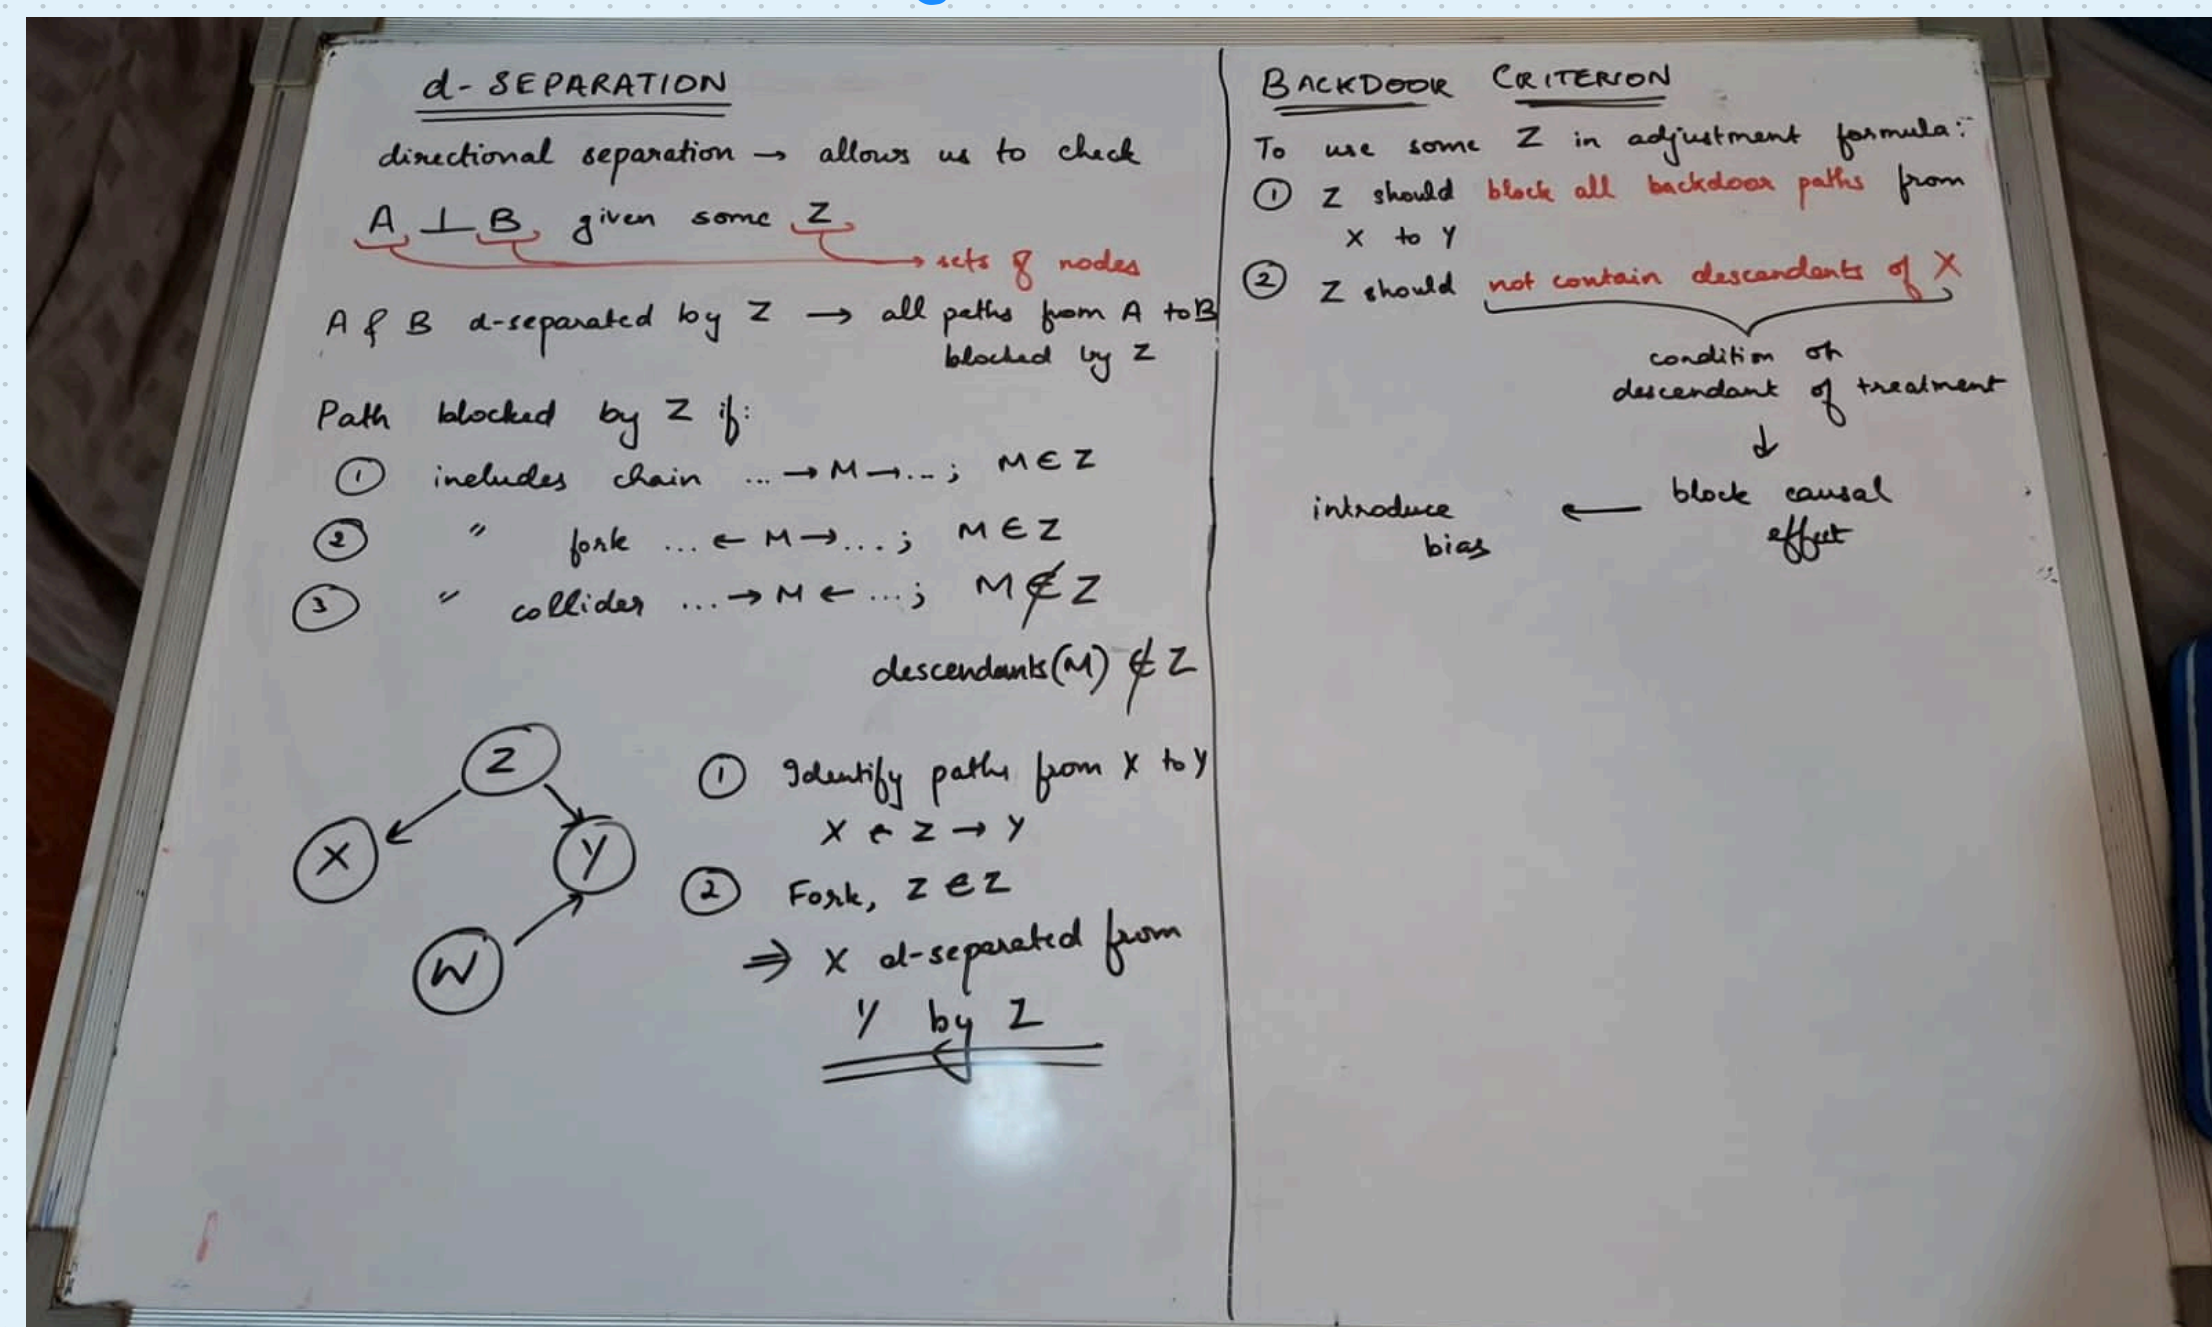 d-SEPARATION
directional separation → allows us to check
A ⊥ B given some Z
→ sets of nodes
A & B d-separated by Z → all paths from A to B
blocked by Z
Path blocked by Z if:
① includes chain ... → M → ... ; M ∈ Z
② " fork ... ← M → ... ; M ∈ Z
③ " collider ... → M ← ... ; M ∉ Z
descendants(M) ∉ Z
Z
X
Y
W
① Identify paths from X to Y
X ← Z → Y
② Fork, Z ∈ Z
⇒ X d-separated from
Y by Z
BACKDOOR CRITERION
To use some Z in adjustment formula:-
① Z should block all backdoor paths from
X to Y
② Z should not contain descendants of X
condition on
descendant of treatment
↓
block causal
effect
←
introduce
bias